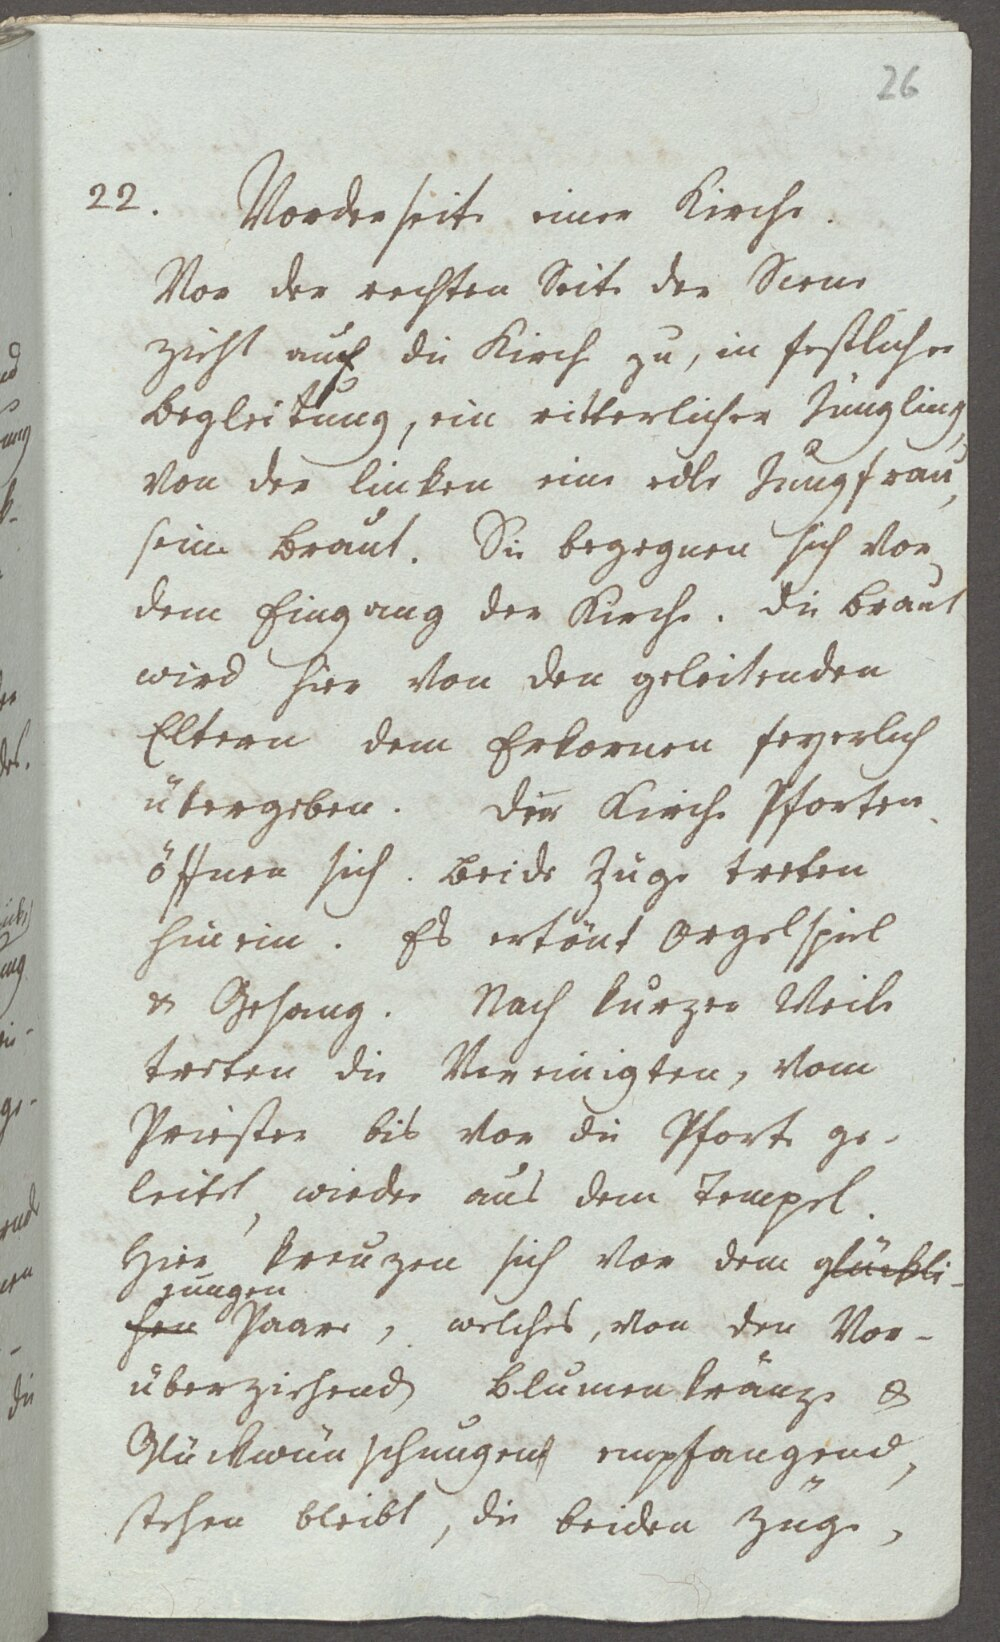 26
22. Vorderseite einer Kirche.
Vor der rechten Seite der Scene
zieht auf die Kirche zu, in festlicher
Begleitung, ein ritterlicher Jüngling,
von der linken eine edle Jungfrau,
seine Braut. Sie begegnen sich vor
dem Eingang der Kirche. Die Braut
wird hier von den geleitenden
Eltern dem Erkornen feyerlich
übergeben. Der Kirche Pforten
öffnen sich. Beide Züge treten
hinein. Es ertönt Orgelspiel
& Gesang. Nach kurzer Weile
treten die Vereinigten, vom
Priester bis vor die Pforte ge-
leitet, wieder aus dem Tempel.
Hier kreuzen sich vor dem glückli-
jungen
chen Paare, welches, von den Vor-
überziehend Blumenkränze &
Glückwünschungen empfangend,
stehen bleibt, die beiden Züge,